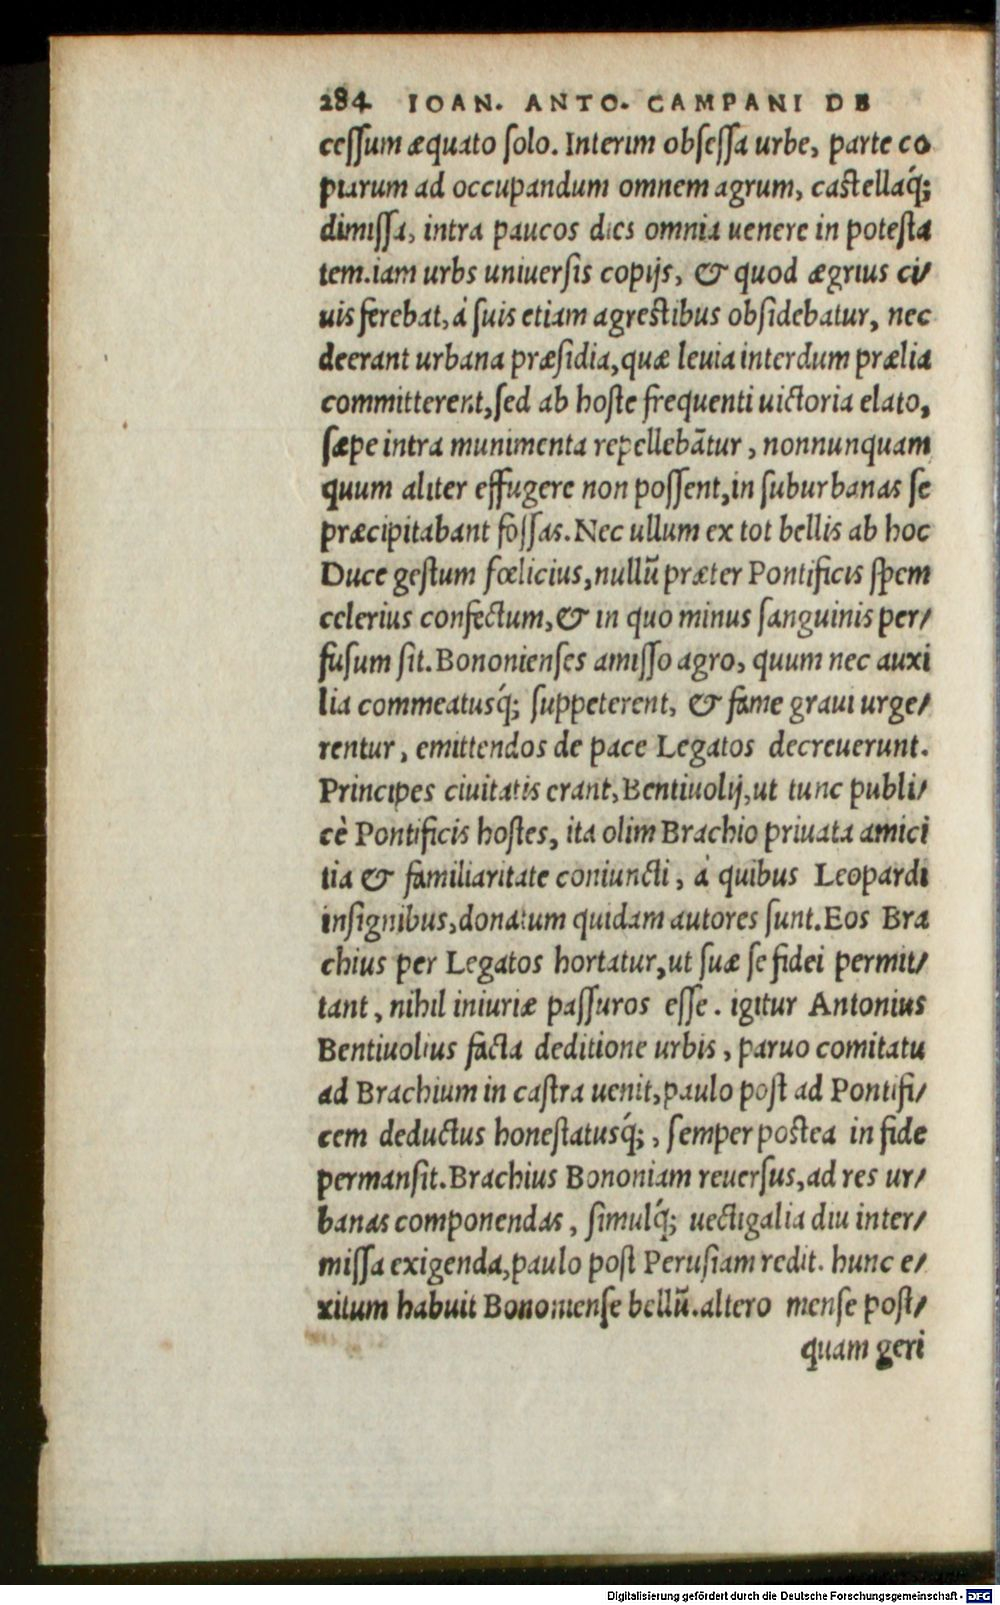 284 IOAN. ANTO. CAMPANI DE
cessum æquato solo. Interim obsessa urbe, parte co
piarum ad occupandum omnem agrum, castellaq́;
dimissa, intra paucos dies omnia uenere in potesta
tem. iam urbs uniuersis copijs, & quod ægrius ci/
uis ferebat, á suis etiam agrestibus obsidebatur, nec
deerant urbana præsidia, quæ leuia interdum prælia
committerent, sed ab hoste frequenti uictoria elato,
sæpe intra munimenta repellebātur, nonnunquam
quum aliter effugere non possent, in suburbanas se
præcipitabant fossas. Nec ullum ex tot bellis ab hoc
Duce gestum fœlicius, nullū præter Pontificis spem
celerius confectum, & in quo minus sanguinis per/
fusum sit. Bononienses amisso agro, quum nec auxi
lia commeatusq́; suppeterent, & fame graui urge/
rentur, emittendos de pace Legatos decreuerunt.
Principes ciuitatis erant, Bentiuolij, ut tunc publi/
cè Pontificis hostes, ita olim Brachio priuata amici
tia & familiaritate coniuncti, á quibus Leopardi
insignibus, donatum quidam autores sunt. Eos Bra
chius per Legatos hortatur, ut suæ se fidei permit/
tant, nihil iniuriæ passuros esse. igitur Antonius
Bentiuolius facta deditione urbis, paruo comitatu
ad Brachium in castra uenit, paulo post ad Pontifi/
cem deductus honestatusq́;, semper postea in fide
permansit. Brachius Bononiam reuersus, ad res ur/
banas componendas, simulq́; uectigalia diu inter/
missa exigenda, paulo post Perusiam redit. hunc e/
xitum habuit Bononiense bellū. altero mense post/
quam geri
Digitalisierung gefördert durch die Deutsche Forschungsgemeinschaft - DFG